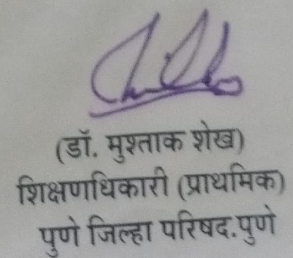 (डॉ. मुश्ताक शेख)
शिक्षणधिकारी (प्राथमिक)
पुणे जिल्हा परिषद.पुणे